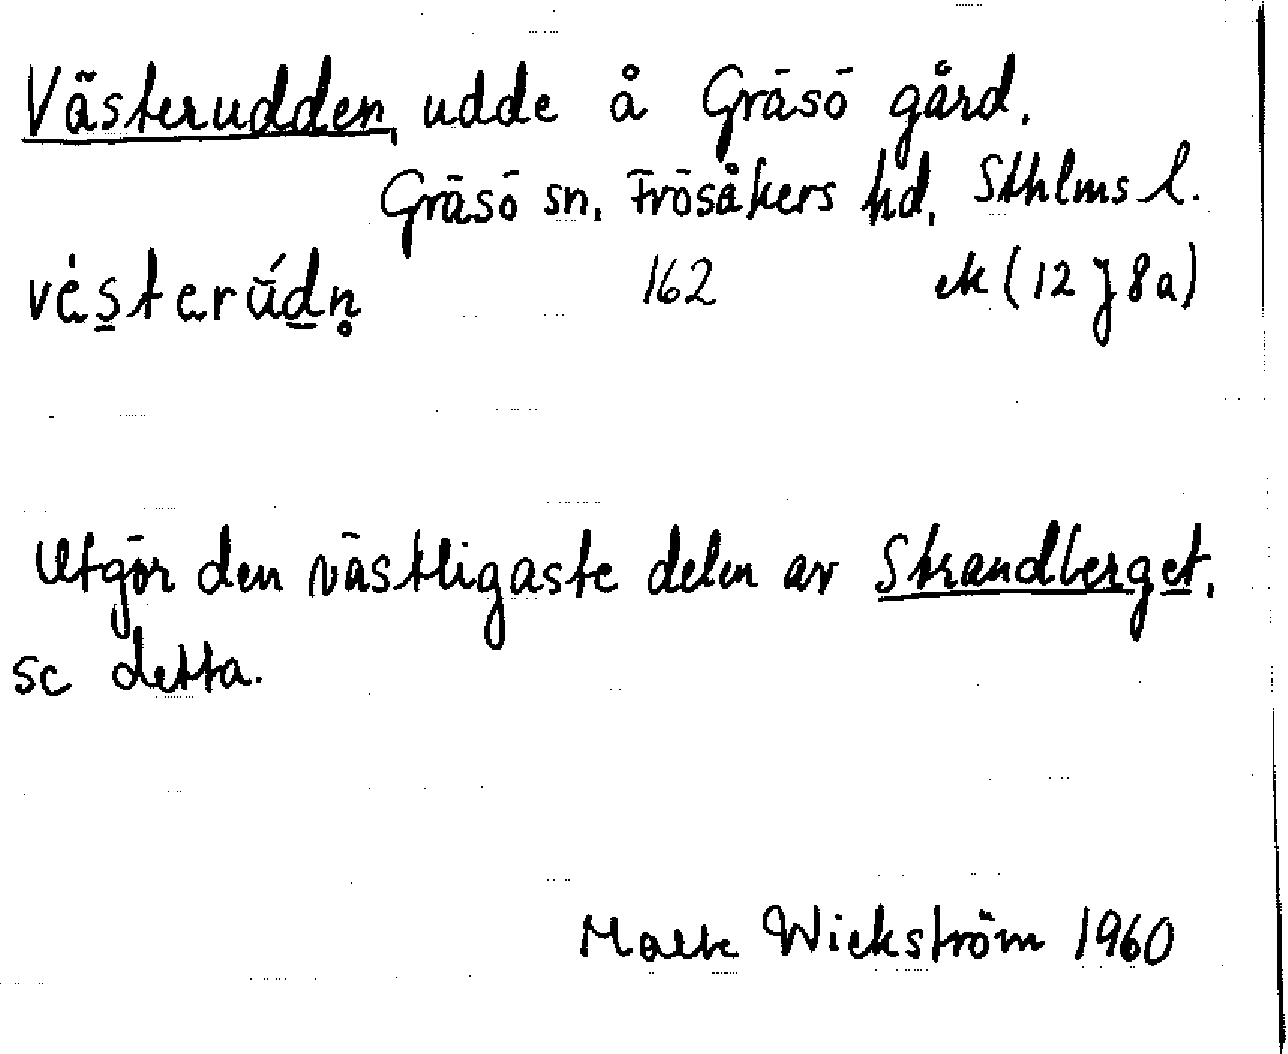 Västerudden, udde å Gräsö gård.
Gräsö sn, Frösåkers hd, Sthlms l.
vèsterúdn̥ 162 ek (12 J 8a)
Utgör den västligaste delen av Strandberget,
se detta.
Malte Wickström 1960